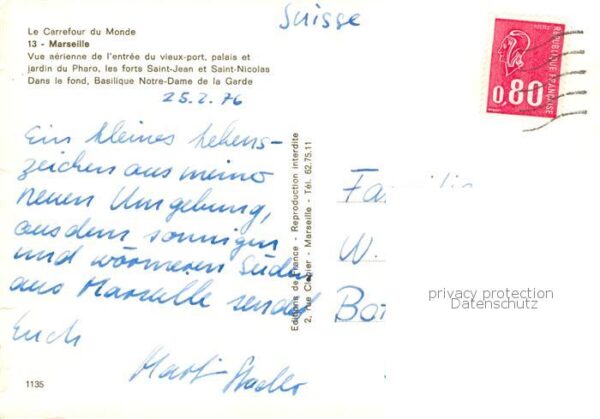 Le Carrefour du Monde
13 - Marseille
Vue aérienne de l'entrée du vieux-port, palais et
jardin du Pharo, les forts Saint-Jean et Saint-Nicolas
Dans le fond, Basilique Notre-Dame de la Garde
25.2.76
Ein kleines Lebens-
zeichen aus meiner
neuen Umgebung,
aus dem sonnigen
und wärmeren Süden
aus Marseille sendet
Euch
1135
Editions de France - Reproduction interdite
Marseille - Tél. 62.75.11
Suisse
REPUBLIQUE FRANÇAISE
0,80
W.
privacy protection
Datenschutz